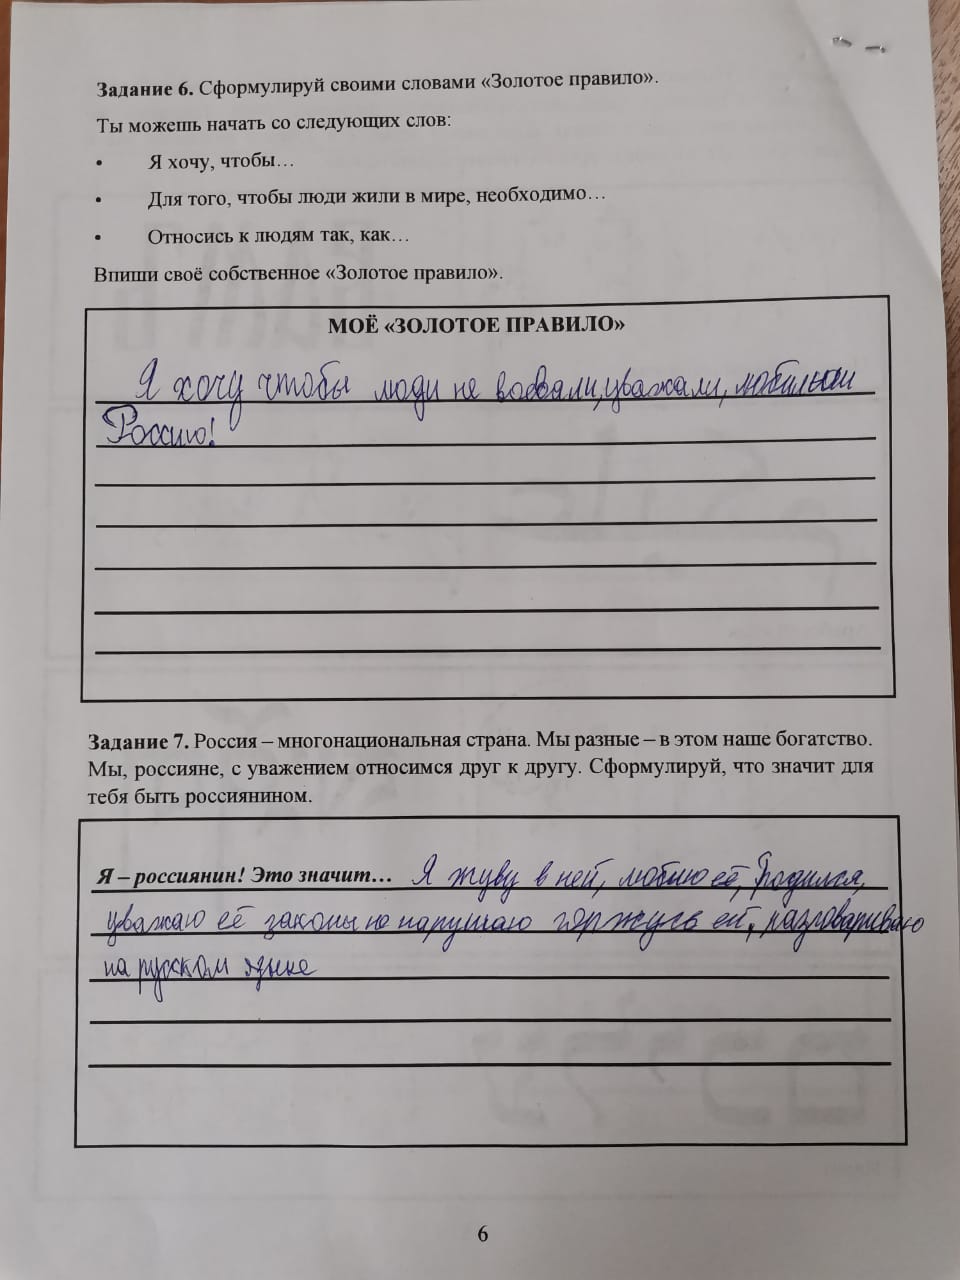 Задание 6. Сформулируй своими словами «Золотое правило».
Ты можешь начать со следующих слов:
• Я хочу, чтобы…
• Для того, чтобы люди жили в мире, необходимо…
• Относись к людям так, как…
Впиши своё собственное «Золотое правило».
МОЁ «ЗОЛОТОЕ ПРАВИЛО»
Я хочу чтобы люди не воевали, уважали,
Россию!
Задание 7. Россия – многонациональная страна. Мы разные – в этом наше богатство.
Мы, россияне, с уважением относимся друг к другу. Сформулируй, что значит для
тебя быть россиянином.
Я – россиянин! Это значит… Я живу в ней, люблю её, Родился,
уважаю её законы не нарушаю горжусь ей, разговариваю
на русском языке
6